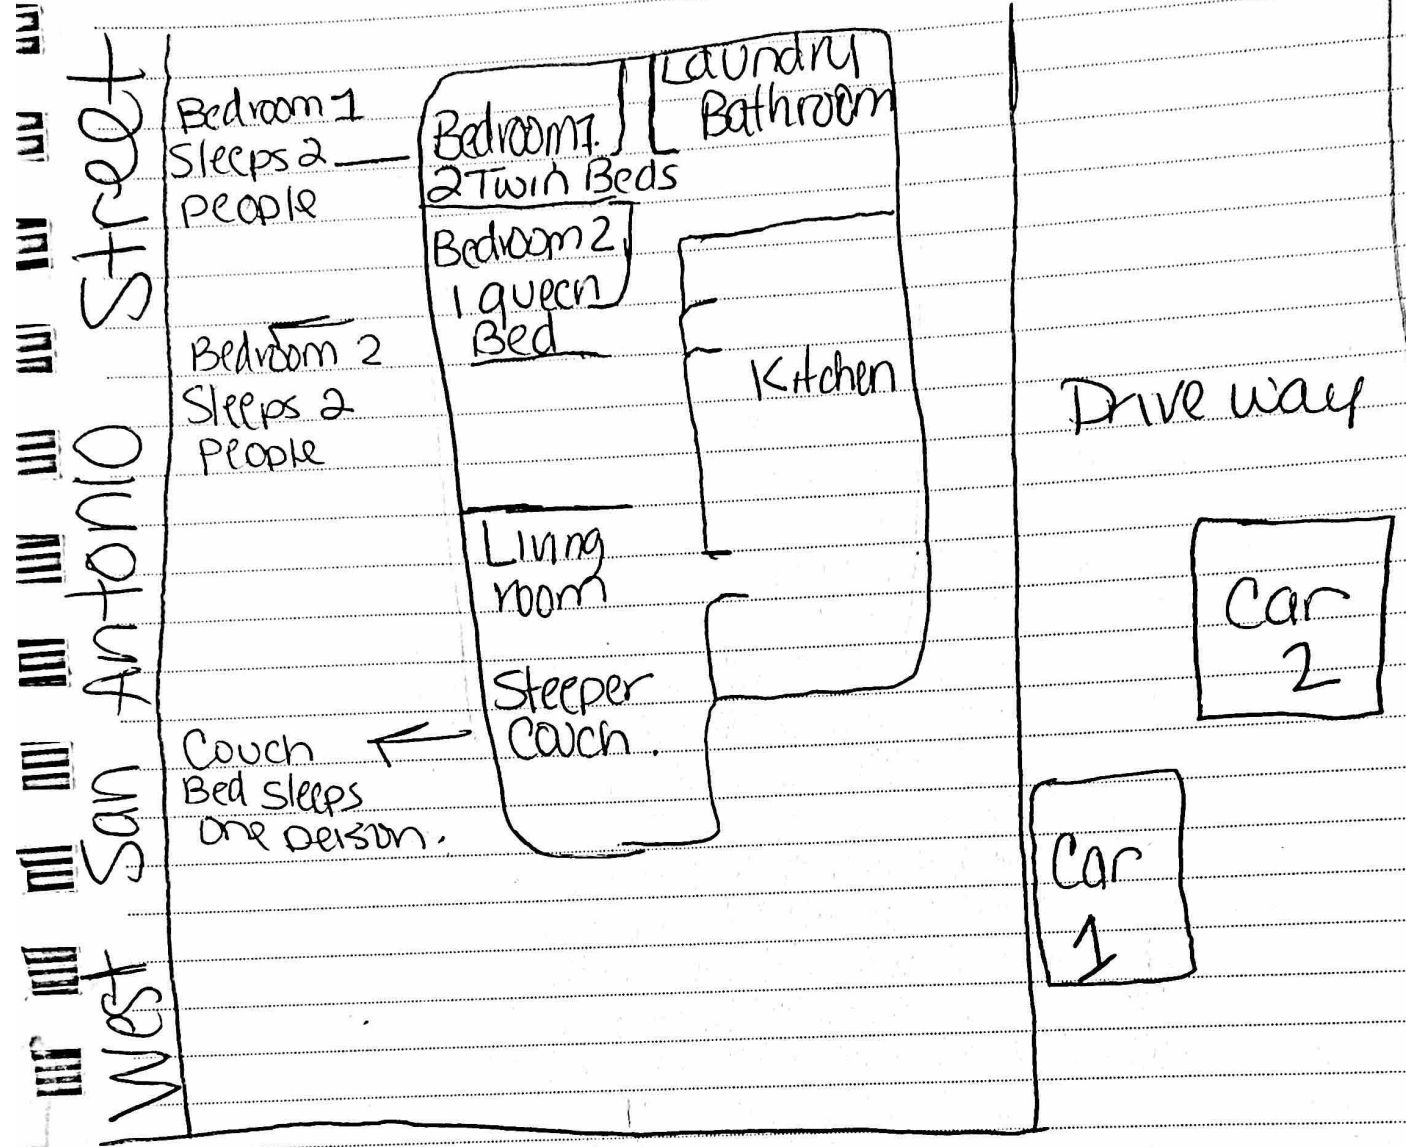 West San Antonio Street
Bedroom 1
Sleeps 2
people
Bedroom 2
Sleeps 2
People
Couch
Bed Sleeps
one person.
Bedroom 1.
2 Twin Beds
Laundry
Bathroom
Bedroom 2
1 queen
Bed
Kitchen
Living
room
Sleeper
Couch.
Drive way
Car
2
Car
1